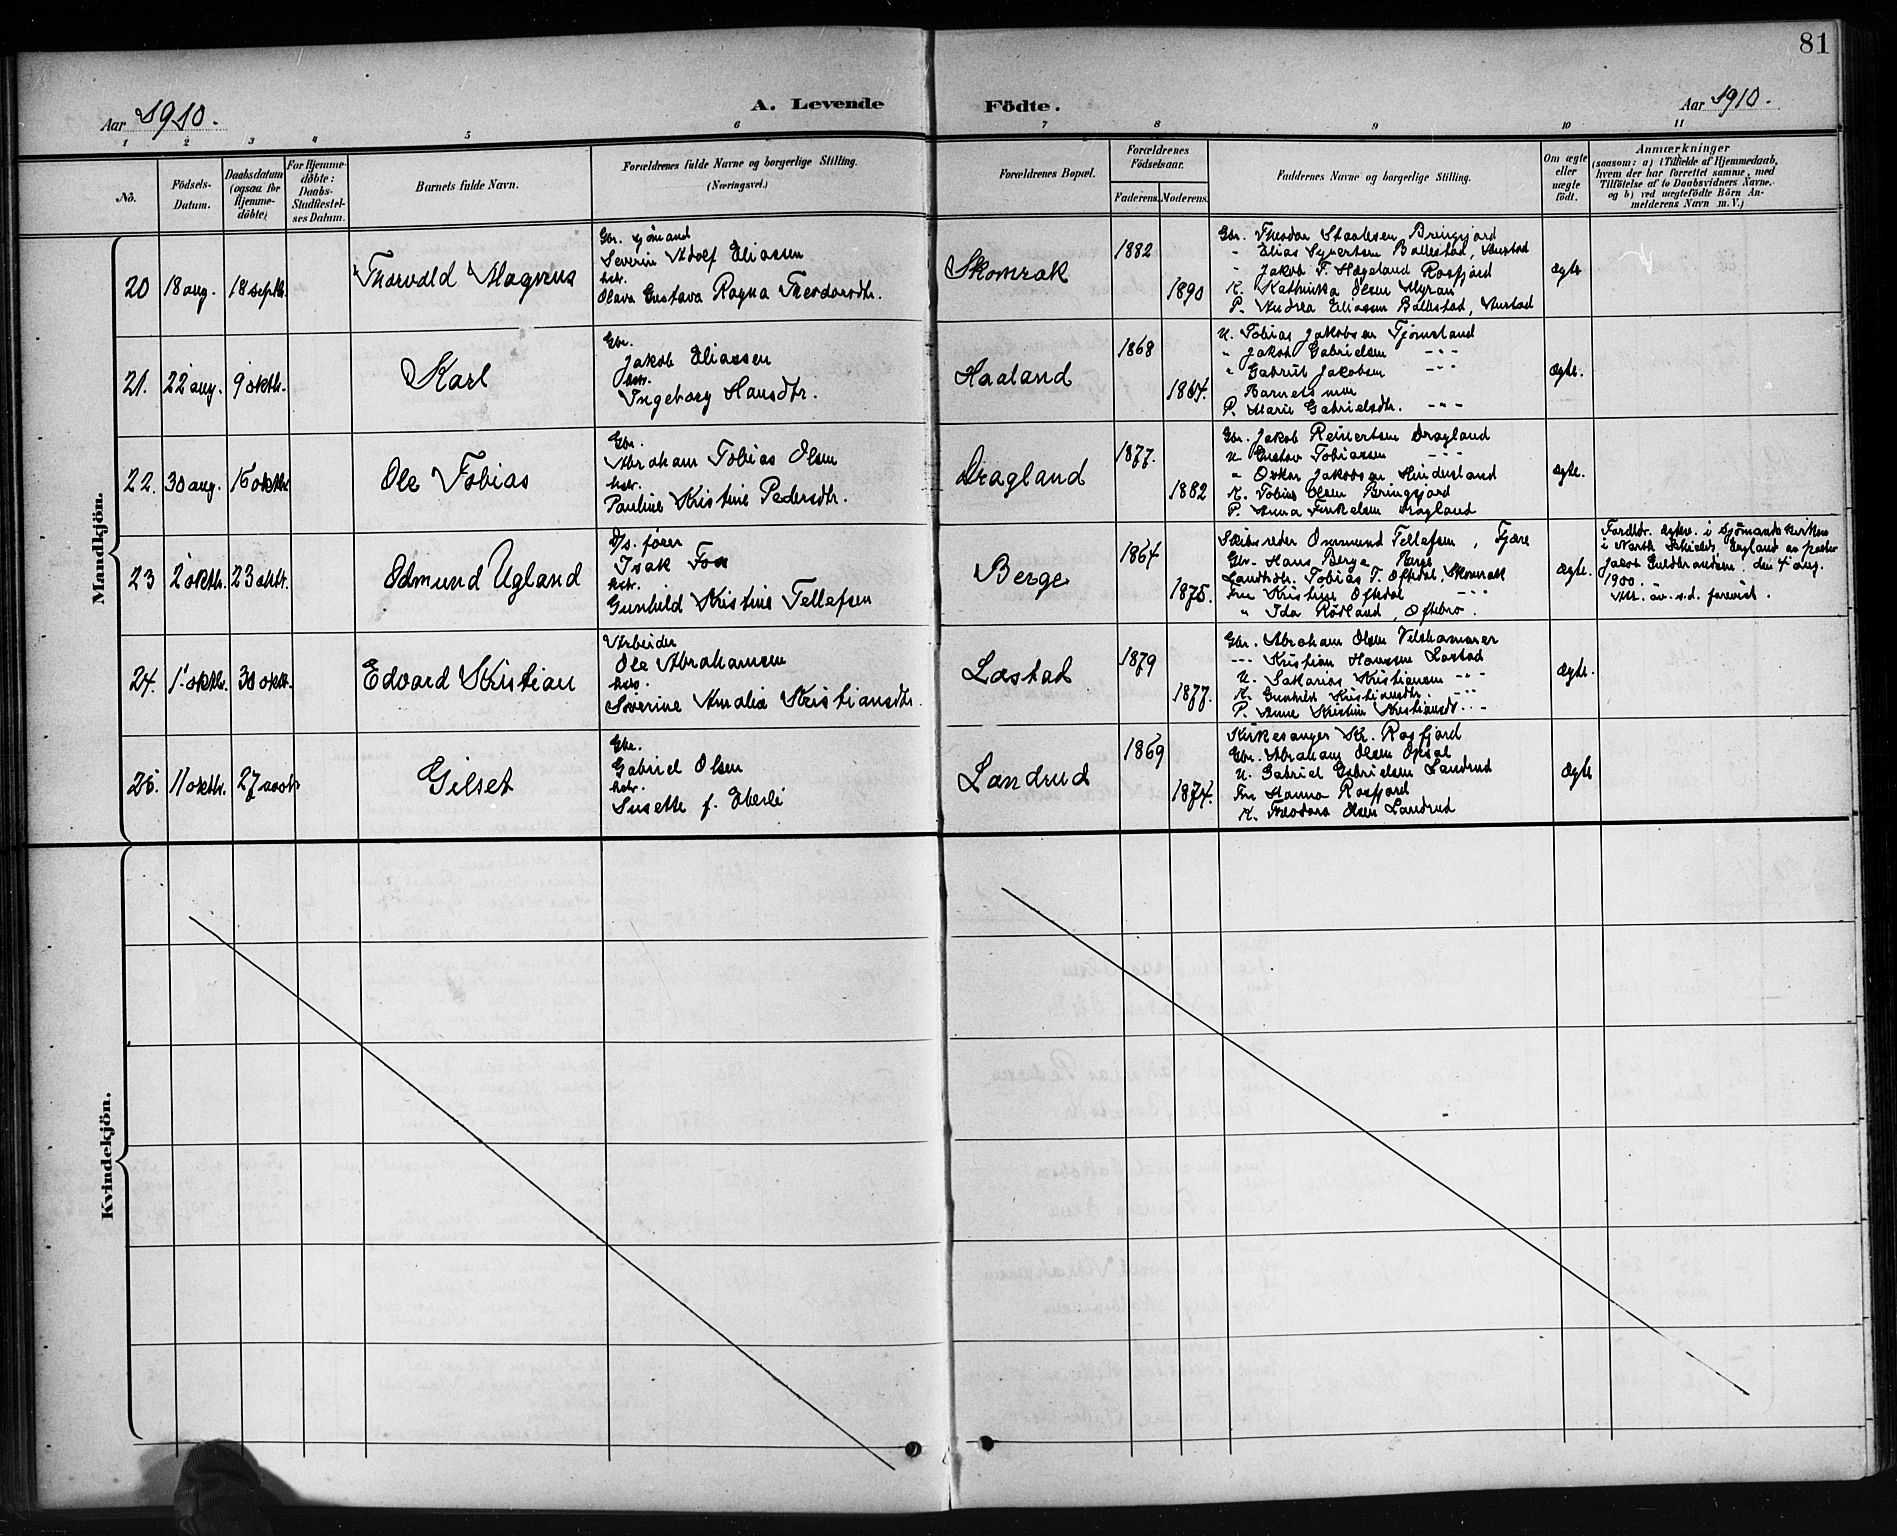 81
Aar 1910.
A. Levende Födte.
Aar 1910.
1 2 3 4 5 6 7 8 9 10 11
No.
Födsels-Datum.
Daabsdatum (ogsaa for Hjemme-döbte)
For Hjemme-döbte: Daabs-Stadfæstel-ses Datum.
Barnets fulde Navn.
Forældrenes fulde Navne og borgerlige Stilling.
(Næringsvei.)
Forældrenes Bopæl.
Forældrenes Födselsaar.
Faderens. Moderens.
Faddernes Navne og borgerlige Stilling.
Om ægte eller uægte födt.
Anmærkninger
(saasom: a) i Tilfælde af Hjemmedaab,
hvem der har forrettet samme, med
Tilföielse af to Daabsvidners Navne,
og b) ved uægtefödte Börn An-
melderens Navn m. V.)
Mandkjön.
20 18 aug. 18 septb. Thorvald Magnus
Gbr. sjömand
Severin Adolf Eliassen
hstr.
Olava Gustava Ragna Theodorsdtr.
Skomrak
1882
1890
Gbr. Theodor Staalesen Bringsjord
" Elias Syvertsen Ballestad, Austad
" Jakob T. Hægeland Rosfjord
K. Kathinka Olsen Myran
P. Andrea Eliassen Ballestad, Austad
ægte
21. 22 aug. 9 oktb. Karl
Gbr.
Jakob Eliassen
hstr.
Ingeborg Hansdtr.
Haaland
1868
U. Tobias Jakobsen Tjömsland
" Jakob Gabrielsen -"-
" Gabriel Jakobsen -"-
Barnets mor
P. Marie Gabrielsdtr. -"-
ægte.
22. 30 aug. 16 oktb. Ole Tobias
Gbr.
Abraham Tobias Olsen
hstr.
Pauline Kristine Pedersdtr.
Dragland
1877.
1882
Gbr. Jakob Reinertsen Dragland
U. Gustav Tobiassen -"-
" Oskar Jakobsen
K. Tobine Olsen Bringsjord
P. Anna Dragland
ægte.
23 2 oktb. 23 oktb. Odmund Ugland
D/s. förer
Isak Foss
hstr.
Gunhild Kristine Tellefsen
Berge
1864
1875.
Skibsreder Ommund Tellefsen, Fjære
Gbr. Hans Berge, Berge
Landhdr. Tobias T. Oftedal, Skomrak
Fru Kristine Oftedal -"-
" Ida Rödland, Oftebro.
ægte.
Foreldr. ægtev. i sjömandskirken
i North Schields, England av pastor
Jacob Guldbrandsen, den 4 aug.
1900.
Att. av. s.d. forevist.
24. 1. oktb. 30 oktb. Edvard Kristian
Arbeider
Ole Abrahamsen
hstr.
Severine Amalie Kristiansdtr.
Læstad
1879
1877.
Gbr. Abraham Olsen
-"- Kristian Hanssen Læstad
U. Sakarias Kristiansen -"-
K. Gunhild Kristiansdtr. -"-
P. Anne Kristine Kristiansdt. -"-
ægte.
25. 11 oktb. 27 novb. Gilset
Gbr.
Gabriel Olsen
hstr.
Susette f. Eberli
Landrud
1869
1874.
Kirkesanger Kr. Rosfjord
Gbr. Abraham Olsen Opsal
U. Gabriel Gabrielsen Landrud
Fru Hanna Rosfjord
K. Theodora Olsen Landrud
ægte
Kvindekjön.